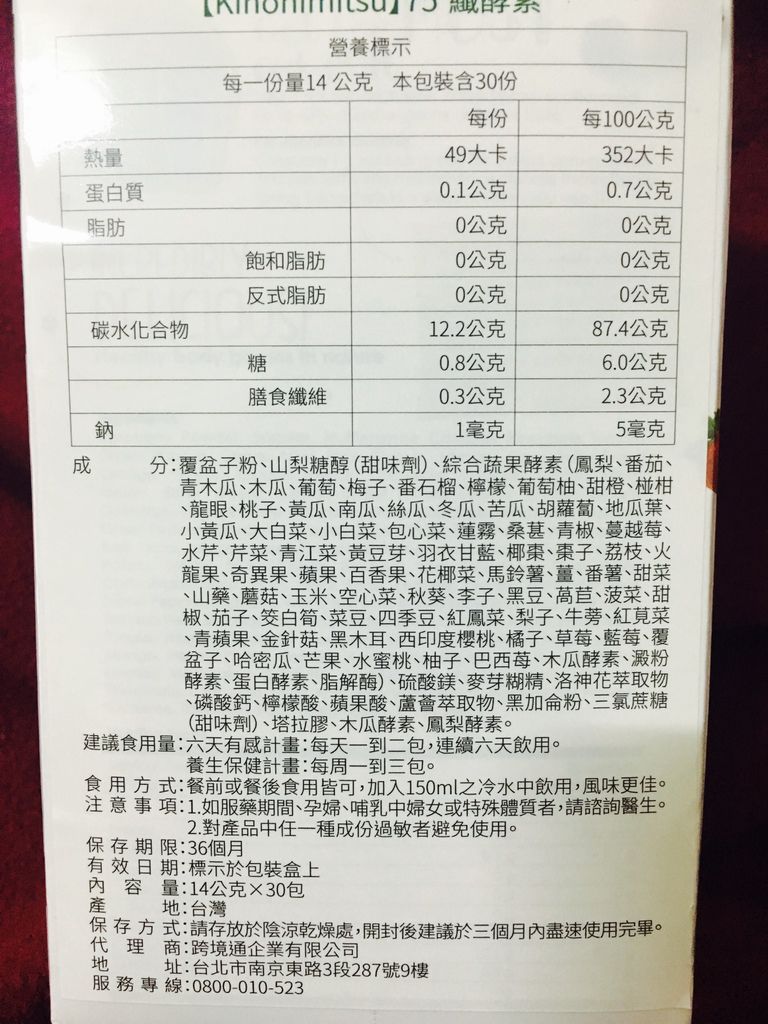 【Kinohimitsu】75 纖酵素
營養標示
每一份量14 公克 本包裝含30份
每份 每100公克
熱量 49大卡 352大卡
蛋白質 0.1公克 0.7公克
脂肪 0公克 0公克
飽和脂肪 0公克 0公克
反式脂肪 0公克 0公克
碳水化合物 12.2公克 87.4公克
糖 0.8公克 6.0公克
膳食纖維 0.3公克 2.3公克
鈉 1毫克 5毫克
成 分:覆盆子粉、山梨糖醇(甜味劑)、綜合蔬果酵素(鳳梨、番茄、
青木瓜、木瓜、葡萄、梅子、番石榴、檸檬、葡萄柚、甜橙、椪柑
、龍眼、桃子、黃瓜、南瓜、絲瓜、冬瓜、苦瓜、胡蘿蔔、地瓜葉、
小黃瓜、大白菜、小白菜、包心菜、蓮霧、桑葚、青椒、蔓越莓、
水芹、芹菜、青江菜、黃豆芽、羽衣甘藍、椰棗、棗子、荔枝、火
龍果、奇異果、蘋果、百香果、花椰菜、馬鈴薯、薑、番薯、甜菜
、山藥、蘑菇、玉米、空心菜、秋葵、李子、黑豆、萵苣、菠菜、甜
椒、茄子、筊白筍、菜豆、四季豆、紅鳳菜、梨子、牛蒡、紅莧菜
、青蘋果、金針菇、黑木耳、西印度櫻桃、橘子、草莓、藍莓、覆
盆子、哈密瓜、芒果、水蜜桃、柚子、巴西莓、木瓜酵素、澱粉
酵素、蛋白酵素、脂解酶)、硫酸鎂、麥芽糊精、洛神花萃取物
、磷酸鈣、檸檬酸、蘋果酸、蘆薈萃取物、黑加侖粉、三氯蔗糖
(甜味劑)、塔拉膠、木瓜酵素、鳳梨酵素。
建議食用量:六天有感計畫:每天一到二包,連續六天飲用。
養生保健計畫:每周一到三包。
食用方式:餐前或餐後食用皆可,加入150ml之冷水中飲用,風味更佳。
注意事項:1.如服藥期間、孕婦、哺乳中婦女或特殊體質者,請諮詢醫生。
2.對產品中任一種成份過敏者避免使用。
保存期限:36個月
有效日期:標示於包裝盒上
內 容 量:14公克×30包
產 地:台灣
保存方式:請存放於陰涼乾燥處,開封後建議於三個月內盡速使用完畢。
代 理 商:跨境通企業有限公司
地 址:台北市南京東路3段287號9樓
服務專線:0800-010-523